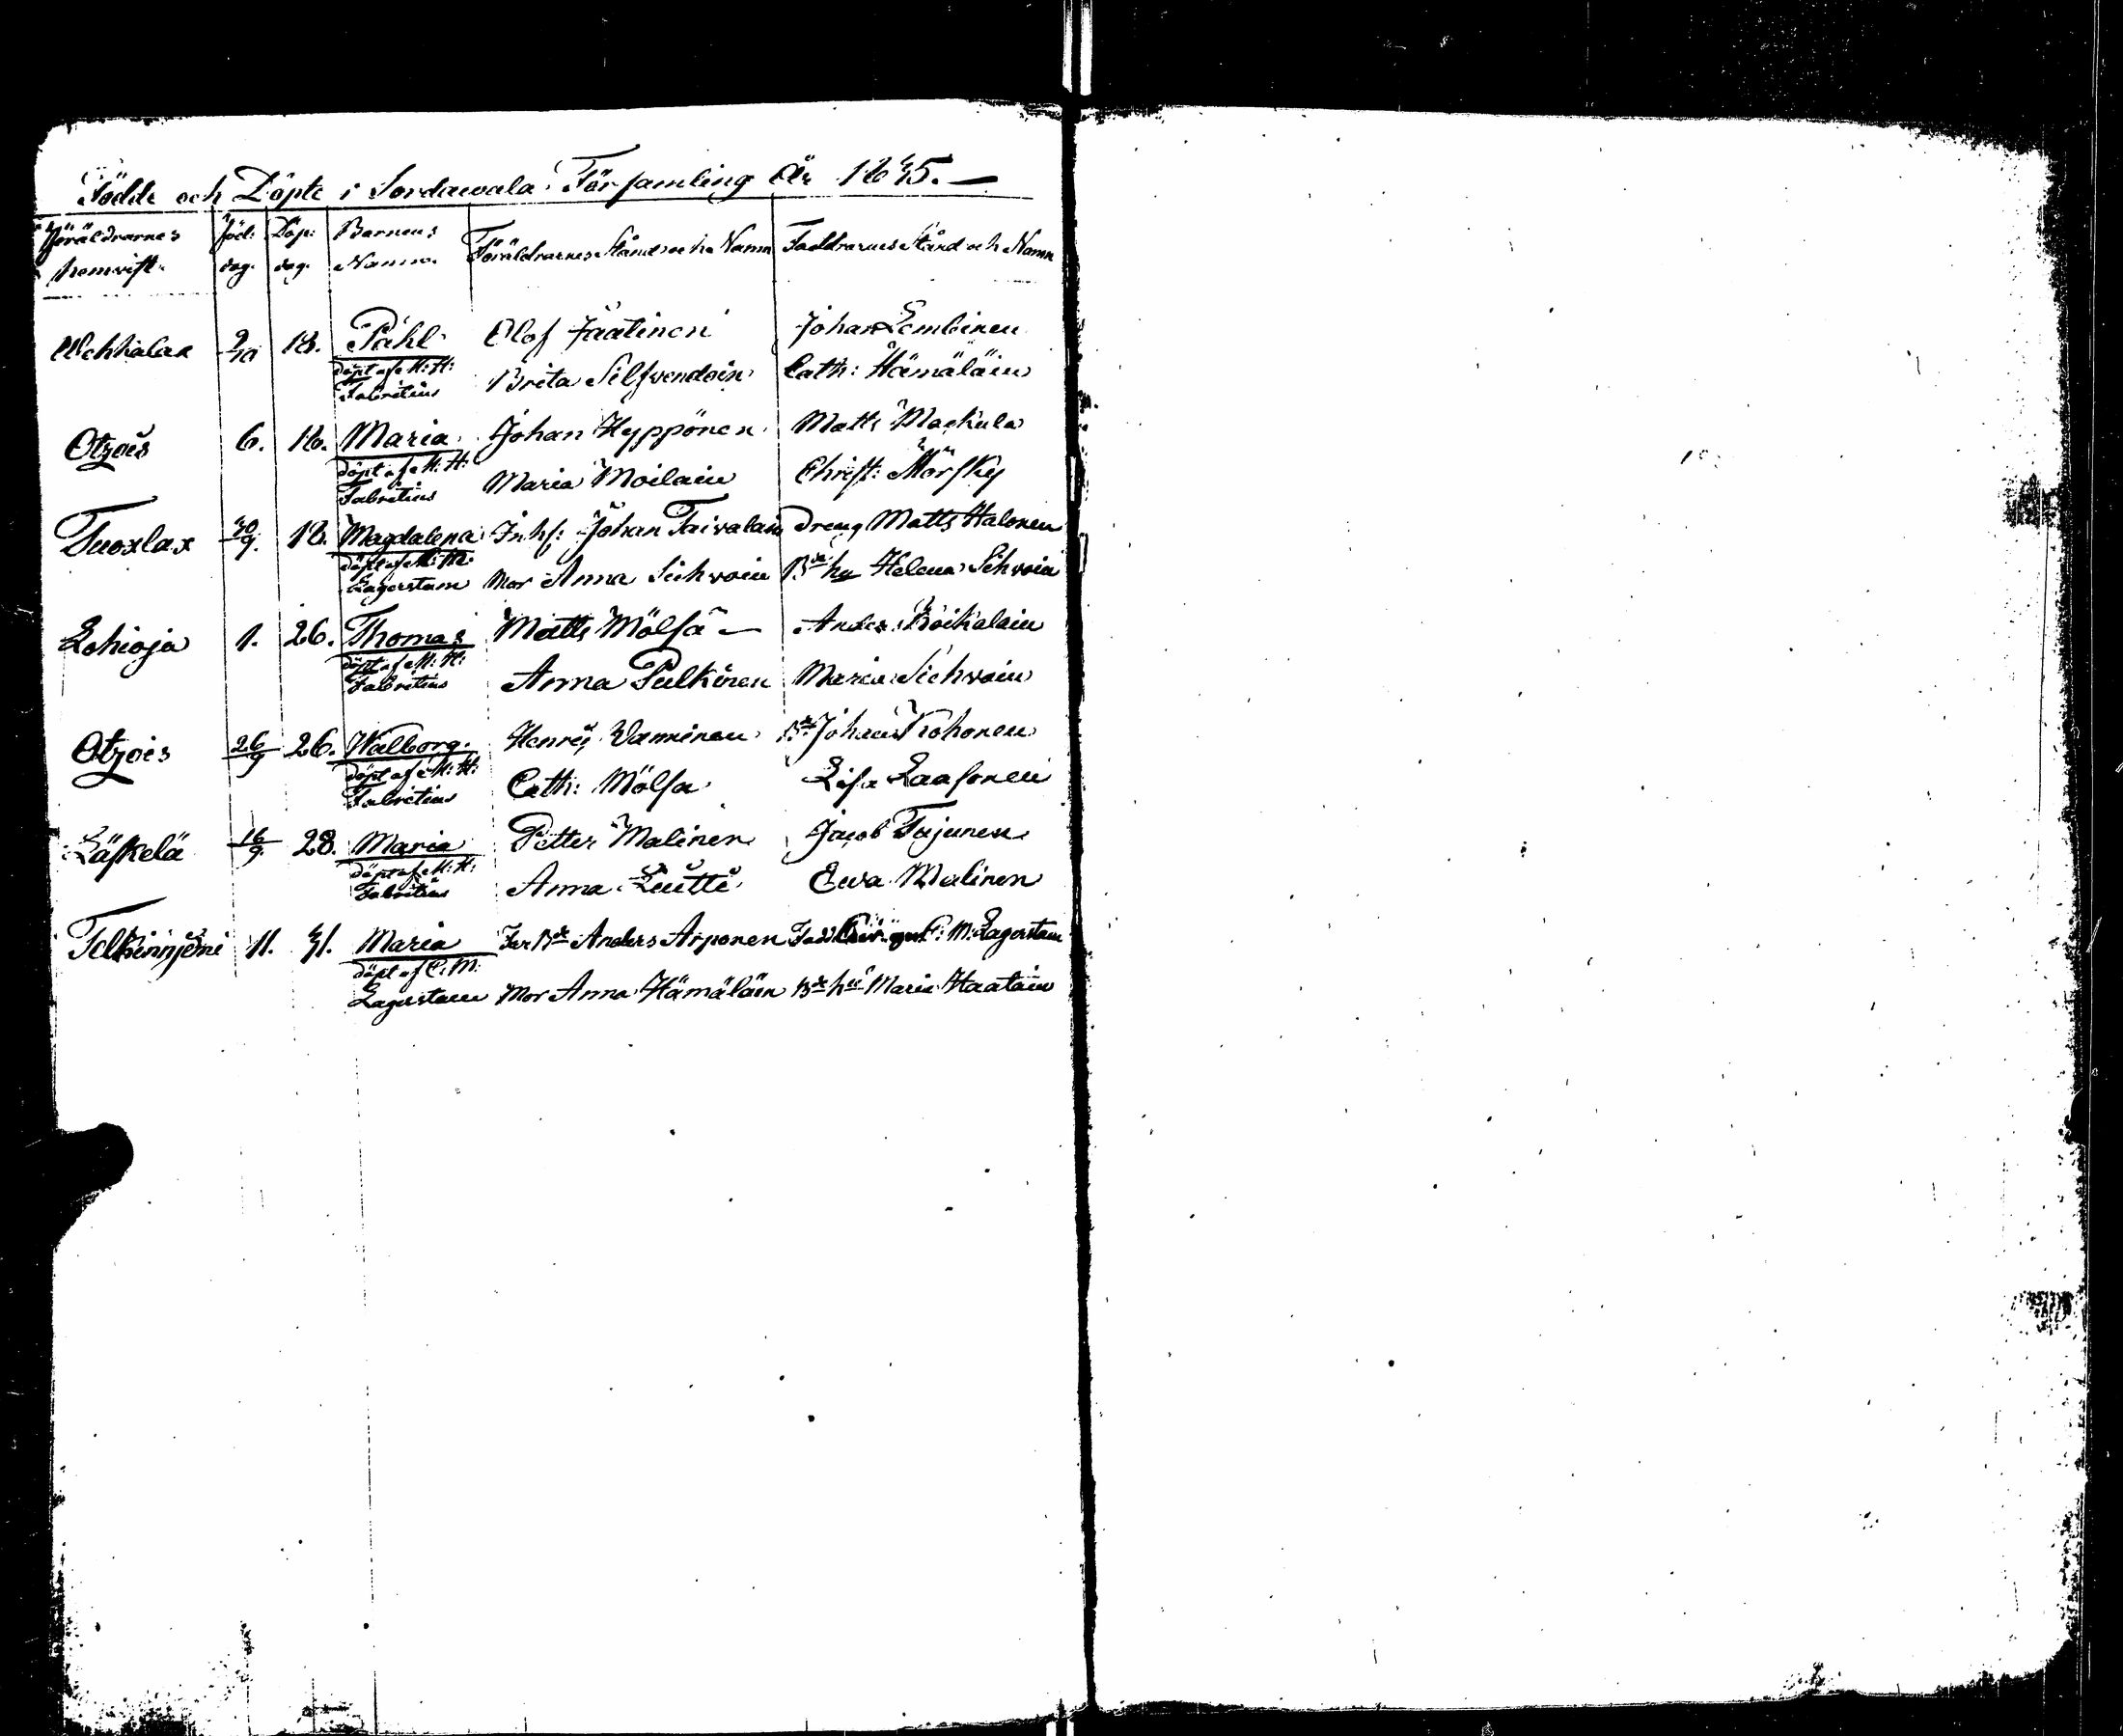 Födde och Döpte i Sordawala Församling År 1645. —
Föräldrarnes hemvist. Föd: dag. Döp: dag. Barnens Namn. Föräldrarnes Stånd och Namn Faddrarnes Stånd och Namn
2/10 18. Påhl Olof Jäätinen Johan Lembinen
döpt af M: H: Fabritius Brita Silfvendoin Cath: Hämäläin
Otzois 6. 16. Maria Johan Hyppönen Matts Mackula
döpt af M: H: Fabritius Maria Moilain Christ: Mörsky
Tuoxlax 30/9. 18. Magdalena Inhs: Johan Taivalain Dreng Matts Halonen
döpt af Lagerstam Mor Anna Siihvoin Bde hu Helena Sihvoin
Lohioja 1. 26. Thomas Matts Mölsä — Anders Roikalain
döpt af M: H: Fabritius Anna Pulkinen Maria Sichvoin
Otzois 26/9 26. Walborg. Henric Wanninen Bde Johan Kohonen
döpt af M: H: Fabritius Cath: Mölsä Lisa Laasonen
Läskelä 16/9. 28. Maria Petter Malinen Jacob Tujunen
döpt af M: H: Fabritius Anna Liutti Ewa Malinen
11. 31. Maria Far Bde Anders Arponen Fadd C: M: Lagerstam
döpt af C. M: Lagerstam Mor Anna Hämäläin Bde hu Maria Haatain